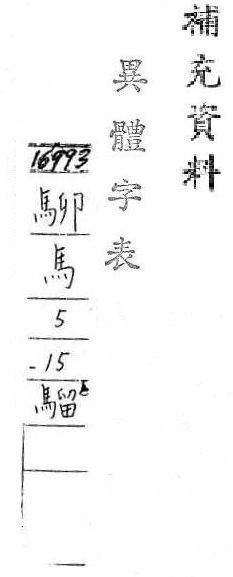 補充資料
異體字表
16993
駠
馬
5
-15
騮